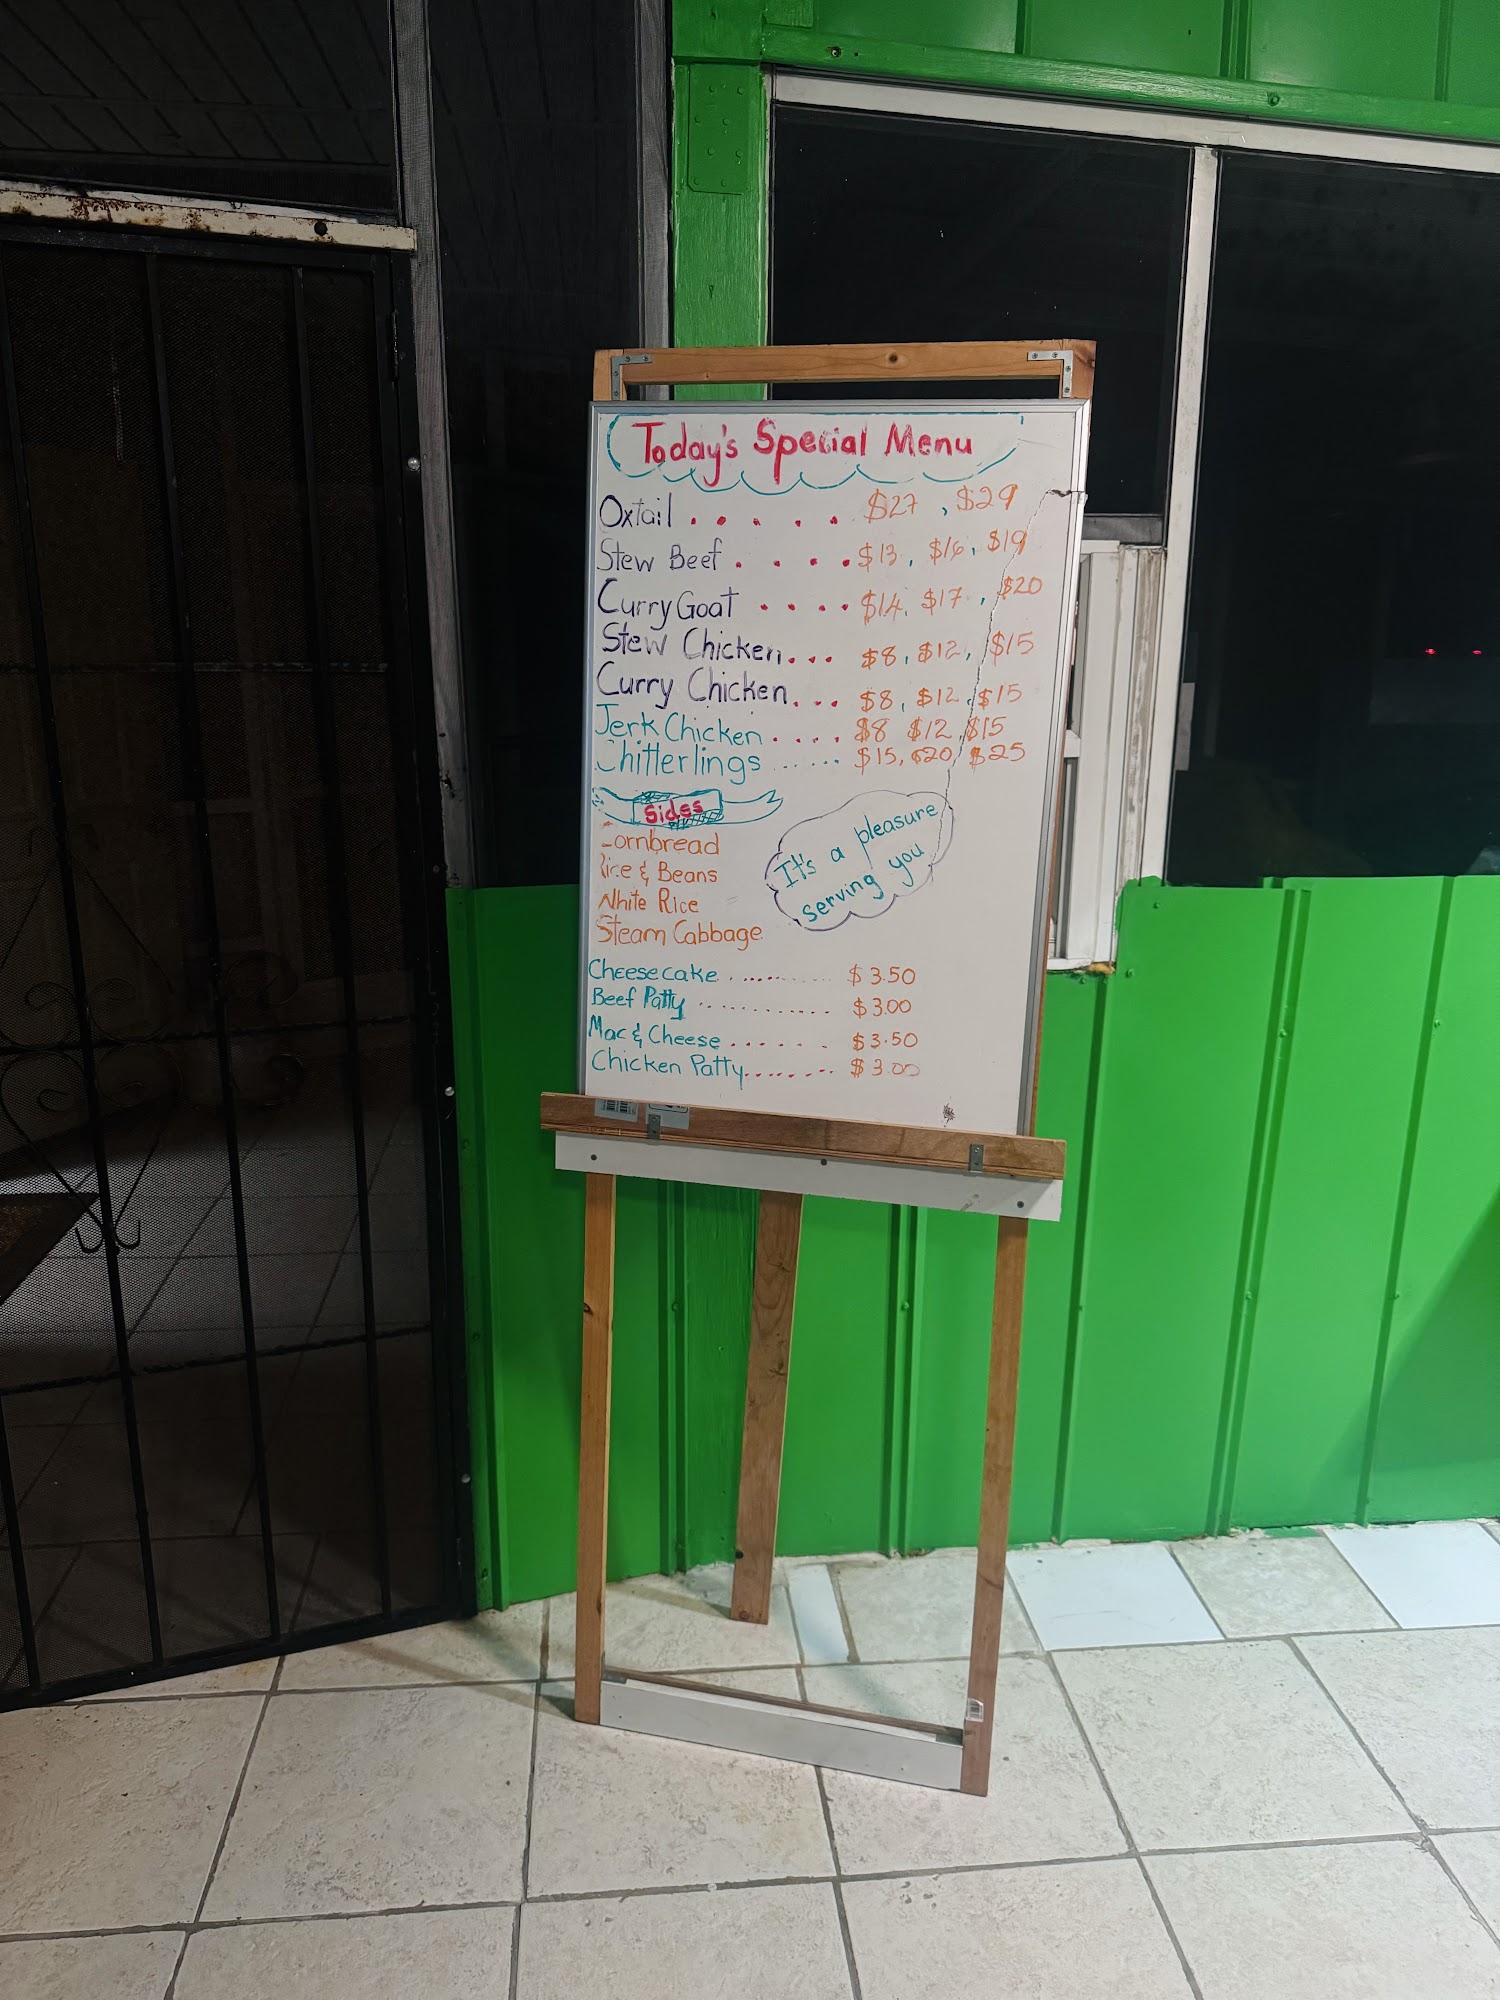 Today's Special Menu
Oxtail . . . . . $27 , $29
Stew Beef . . . . . $13, $16, $19
Curry Goat . . . . $14, $17, $20
Stew Chicken... $8, $12, $15
Curry Chicken... $8, $12, $15
Jerk Chicken .... $8 $12, $15
Chitterlings ...... $15, $20, $25
Sides
Cornbread
Rice & Beans
White Rice
Steam Cabbage
It's a pleasure
serving you
Cheesecake ............ $3.50
Beef Patty ............ $3.00
Mac & Cheese ....... $3.50
Chicken Patty........ $3.00